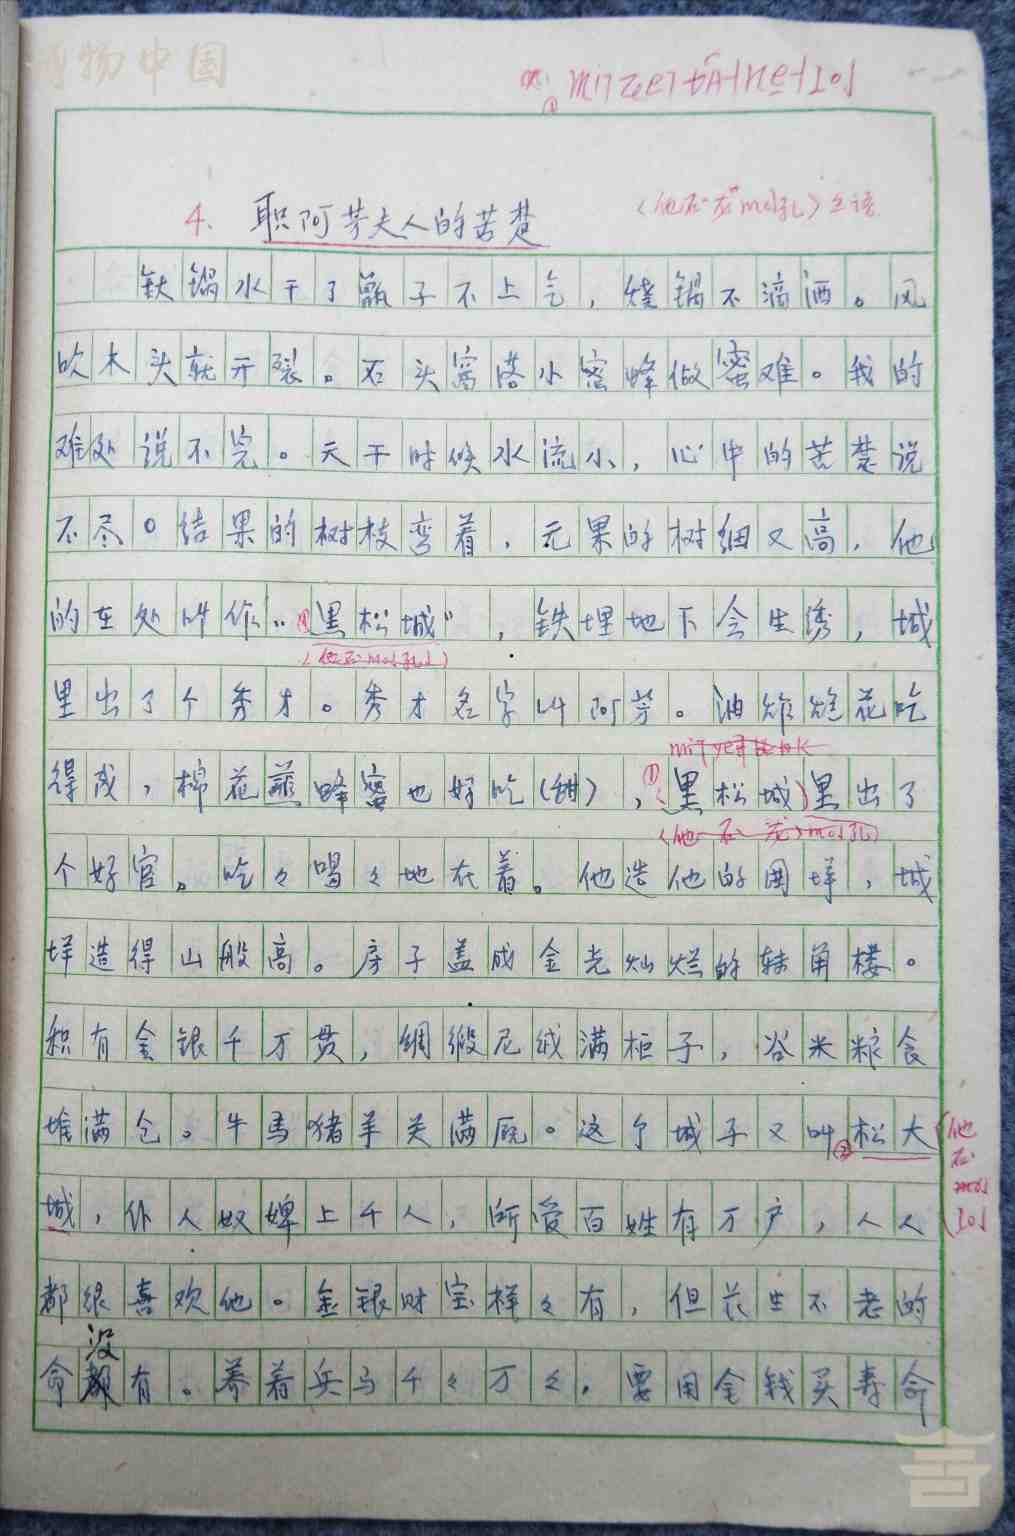 博物中国
4. 职阿芳夫人的苦楚
鈥锅水干了甑子不上气，烧锅不滴洒。风
吹木头就开裂。石头窝搭小蜜蜂做蜜难。我的
难处说不完。天干时候水流小，心中的苦楚说
不尽。结果的树枝弯着，元果的树细又高，他
的在处叫作“黑松城”，铁埋地下会生绣，城
里出了个秀才。秀才名字叫阿芳。油炸花吃
得成，棉花蘸蜂蜜也好吃(甜)，黑松城里出了
个好官。吃々喝々地在着。他造他的围墙，城
墙造得山般高。房子盖成金光灿烂的转角楼。
积有金银千万贯，绸缎尼绒满柜子，谷米粮食
堆满仓。牛马猪羊关满厩。这个城子又叫②松大
城，仆人奴婢上千人，所爱百姓有万户，人人
都很喜欢他。金银财宝样々有，但长生不老的
命没有。养着兵马千々万々，要用金钱买寿命
他石